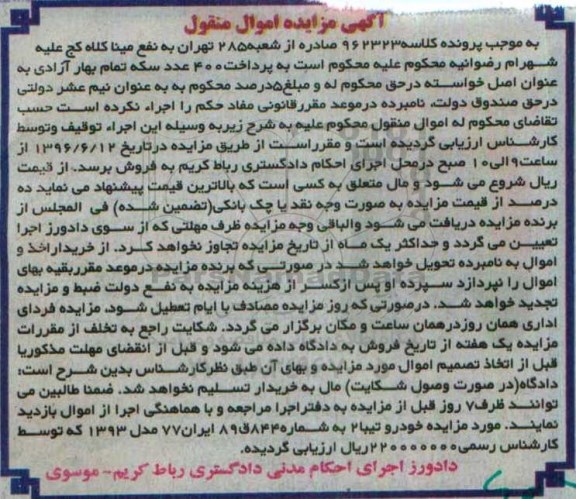 آگهی مزایده اموال منقول
به موجب پرونده کلاسه۹۶۲۳۲۳ صادره از شعبه۲۸۵ تهران به نفع مینا کلاه کج علیه
شهرام رضوانیه محکوم علیه محکوم است به پرداخت۴۰۰ عدد سکه تمام بهار آزادی به
عنوان اصل خواسته درحق محکوم له و مبلغ۵درصد محکوم به به عنوان نیم عشر دولتی
درحق صندوق دولت، نامبرده درموعد مقررقانونی مفاد حکم را اجراء نکرده است حسب
تقاضای محکوم له اموال منقول محکوم علیه به شرح زیربه وسیله این اجراء توقیف وتوسط
کارشناس ارزیابی گردیده است و مقرراست از طریق مزایده درتاریخ ۱۳۹۶/۶/۱۲ از
ساعت۹الی۱۰ صبح درمحل اجرای احکام دادگستری رباط کریم به فروش برسد. از قیمت
ریال شروع می شود و مال متعلق به کسی است که بالاترین قیمت پیشنهاد می نماید ده
درصد از قیمت مزایده به صورت وجه نقد یا چک بانکی(تضمین شده) فی المجلس از
برنده مزایده دریافت می شود والباقی وجه مزایده ظرف مهلتی که از سوی دادورز اجرا
تعیین می گردد و حداکثر یک ماه از تاریخ مزایده تجاوز نخواهد کرد. از خریداراخذ و
اموال به نامبرده تحویل خواهد شد در صورتی که برنده مزایده درموعد مقرربقیه بهای
اموال را نپردازد سپرده او پس ازکسر از هزینه مزایده به نفع دولت ضبط و مزایده
تجدید خواهد شد. درصورتی که روز مزایده مصادف با ایام تعطیل شود، مزایده فردای
اداری همان روزدرهمان ساعت و مکان برگزار می گردد. شکایت راجع به تخلف از مقررات
مزایده یک هفته از تاریخ فروش به دادگاه داده می شود و قبل از انقضای مهلت مذکوریا
قبل از اتخاذ تصمیم اموال مورد مزایده و بهای آن طبق نظرکارشناس بدین شرح است؛
دادگاه(در صورت وصول شکایت) مال به خریدار تسلیم نخواهد شد. ضمنا طالبین می
توانند ظرف۷ روز قبل از مزایده به دفتراجرا مراجعه و با هماهنگی اجرا از اموال بازدید
نمایند. مورد مزایده خودرو تیبا۲ به شماره۸۴۴ق۸۹ ایران۷۷ مدل ۱۳۹۳ که توسط
کارشناس رسمی۲۲۰۰۰۰۰۰۰ریال ارزیابی گردیده.
دادورز اجرای احکام مدنی دادگستری رباط کریم- موسوی